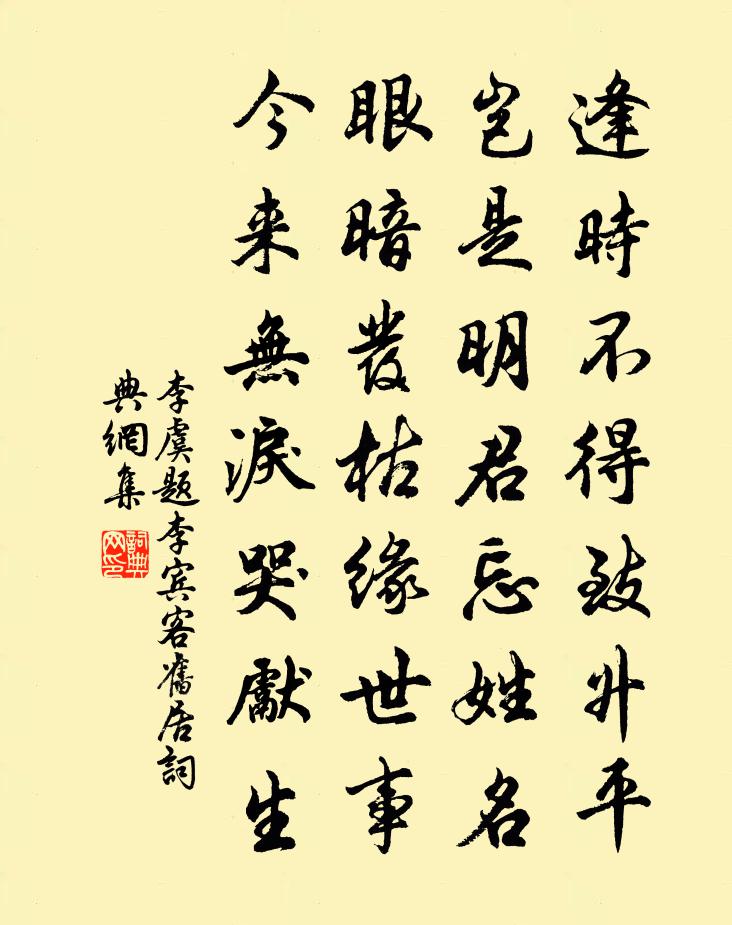 逢時不得致升平
豈是明君忘姓名
眼暗發枯緣世事
今來無淚哭獻生
李虞題李賓客舊居詞
典網集
詞典网印